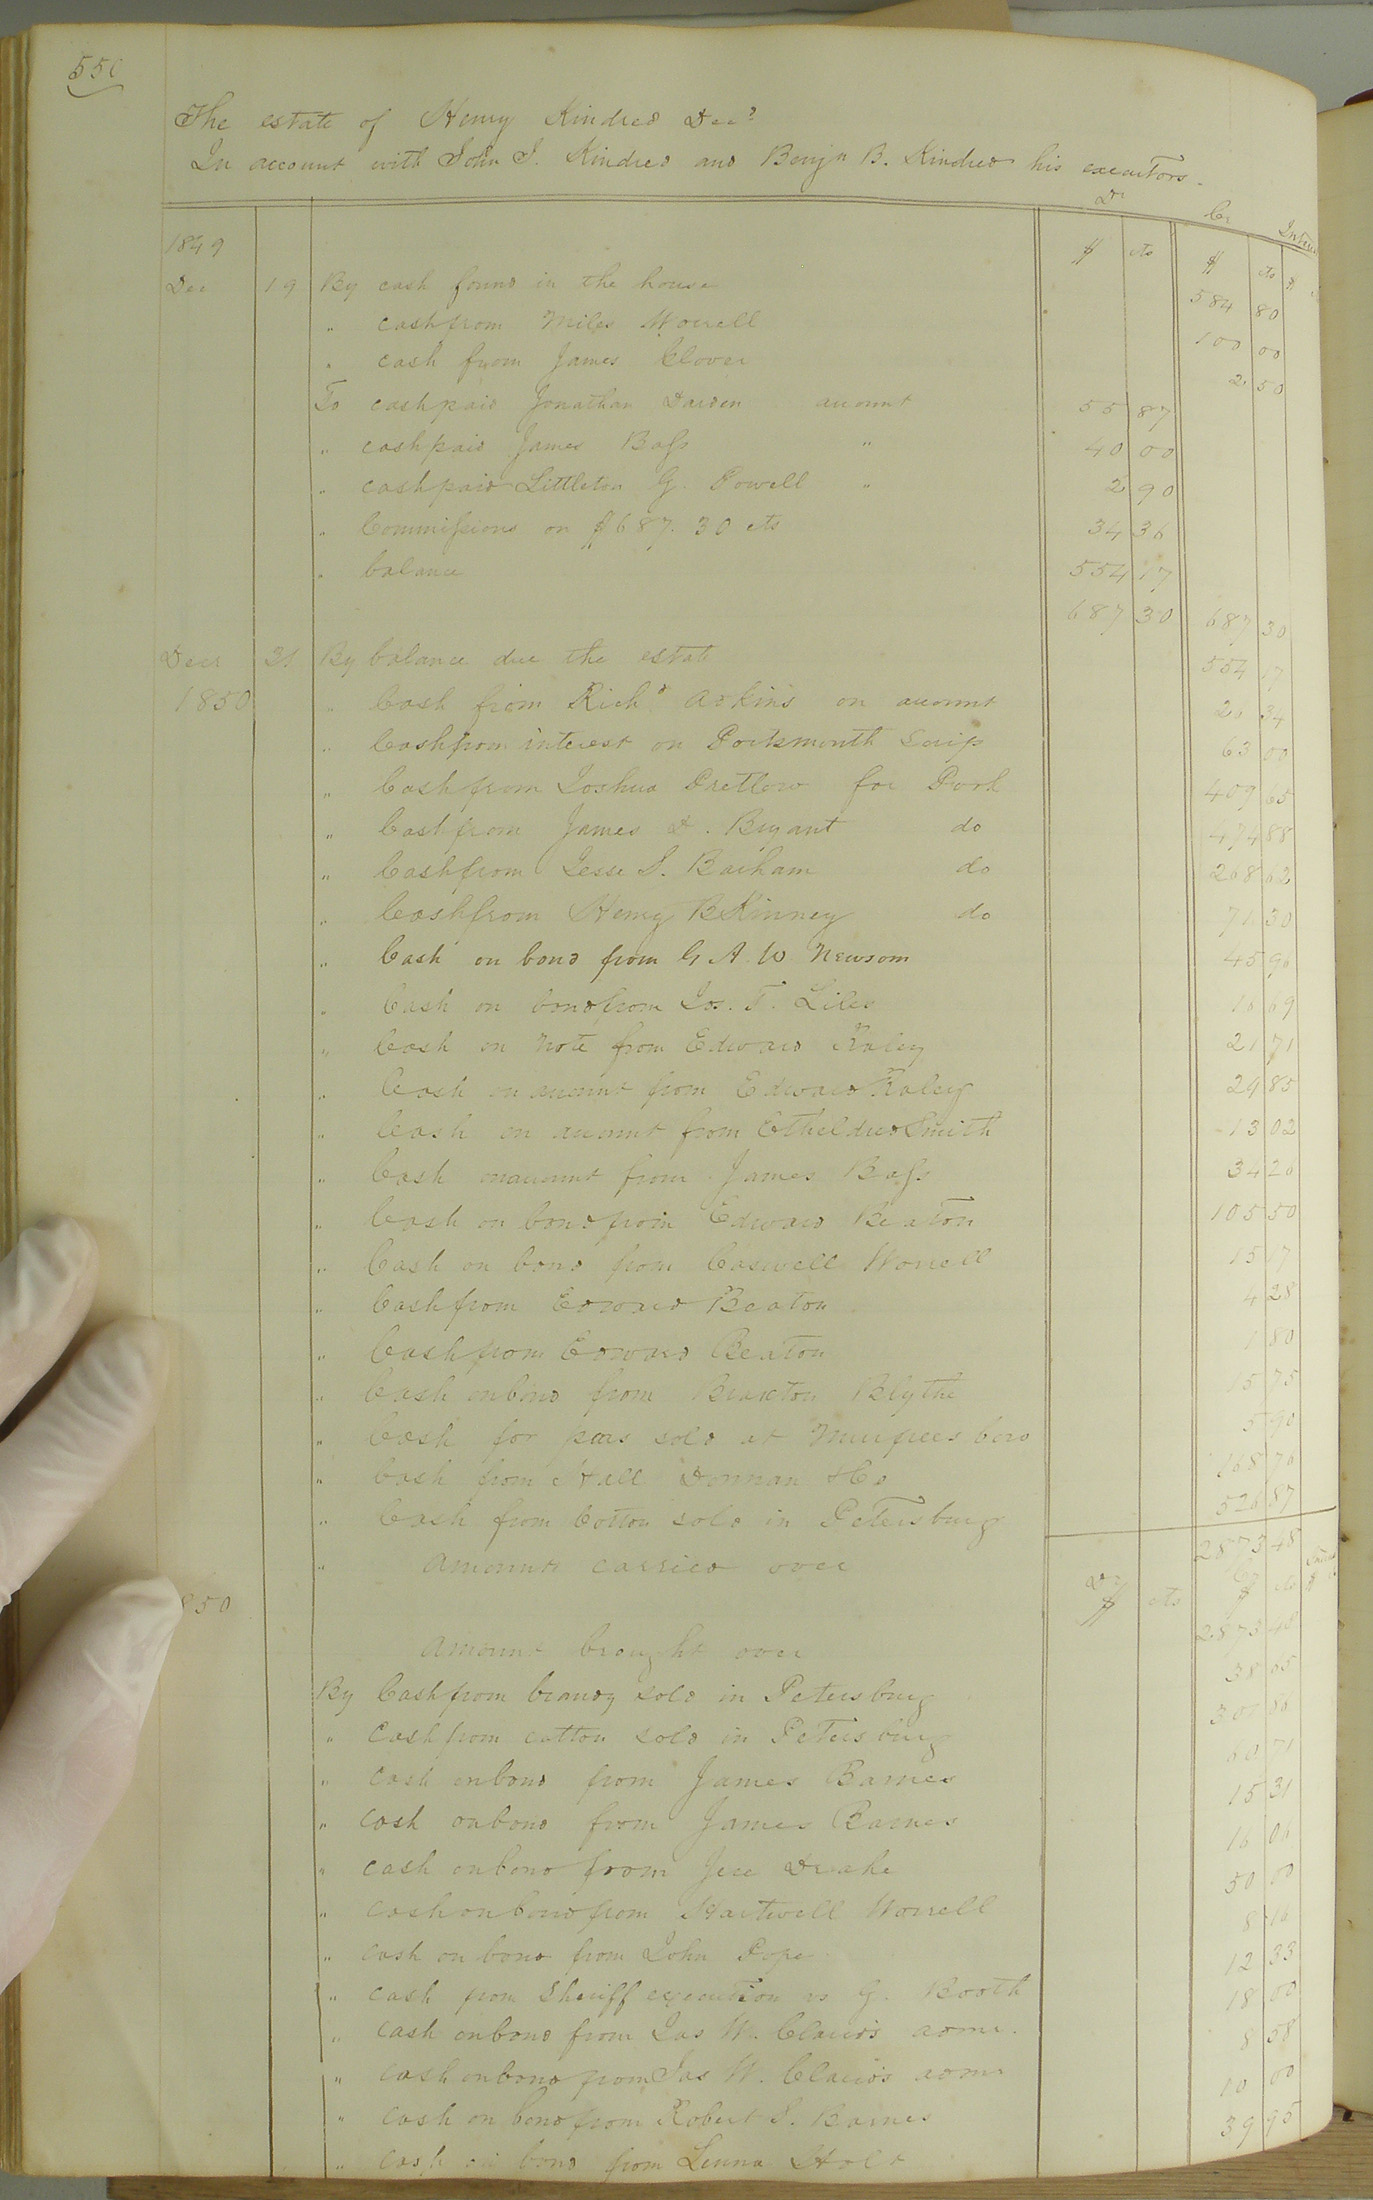 550
The estate of Henry Kindred Decd
In account with John J. Kindred and Benjn B. Kindred his executors.
Dr Cr
1849 $ cts $ cts $
Dec 19 By cash found in the house 584 80
" cash from Miles Worrell 100 00
" cash from James Clover 2 50
To cash paid Jonathan Darden account 55 87
" cash paid James Bass " 40 00
" cash paid Littleton G. Powell " 2 90
" Commissions on $687.30 cts 34 36
" balance 554 17
687 30 687 30
Decr 31 By balance due the estate 554 17
1850 " Cash from Richd Adkins on account 20 34
" Cash from interest on Portsmouth Scrip 63 00
" Cash from Joshua Pretlow for Pork 409 65
" Cash from James D. Bryant do 474 88
" Cash from Jesse S. Barham do 208 62
" Cash from Henry B Kinney do 71 30
" Cash on bond from G A W Newsom 45 96
" Cash on bond from Jos. T. Liles 10 69
" Cash on note from Edward Raley 21 71
" Cash on account from Edward Raley 24 85
" Cash on account from Etheldred Smith 13 02
" Cash on account from James Bass 34 20
" Cash on bond from Edward Beaton 105 50
" Cash on bond from Caswell Worrell 15 17
" Cash from Edward Beaton 4 28
" Cash from Edward Beaton 1 80
" Cash on bond from Braxton Blythe 15 75
" Cash for peas sold at Murfreesboro 5 90
" Cash from Hall Donnan & Co 168 76
" Cash from Cotton sold in Petersburg 526 87
" Amounts carried over 2873 48
Dr Cr
850 $ cts $ cts
Amount brought over 2873 48
By Cash from brandy sold in Petersburg 38 05
" Cash from cotton sold in Petersburg 300 86
" Cash on bond from James Barnes 60 71
" cash on bond from James Barnes 15 31
" cash on bond from Jere Drake 16 06
" cash on bond from Hartwell Worrell 50 00
" cash on bond from John Pope 8 16
" cash from Sheriff execution vs G. Booth 12 33
" cash on bond from Jas W. Claud's admr. 18 00
" cash on bond from Jas W. Claud's admr 8 58
" cash on bond from Robert S. Barnes 10 00
" cash on bond from Lenna Holt 39 95